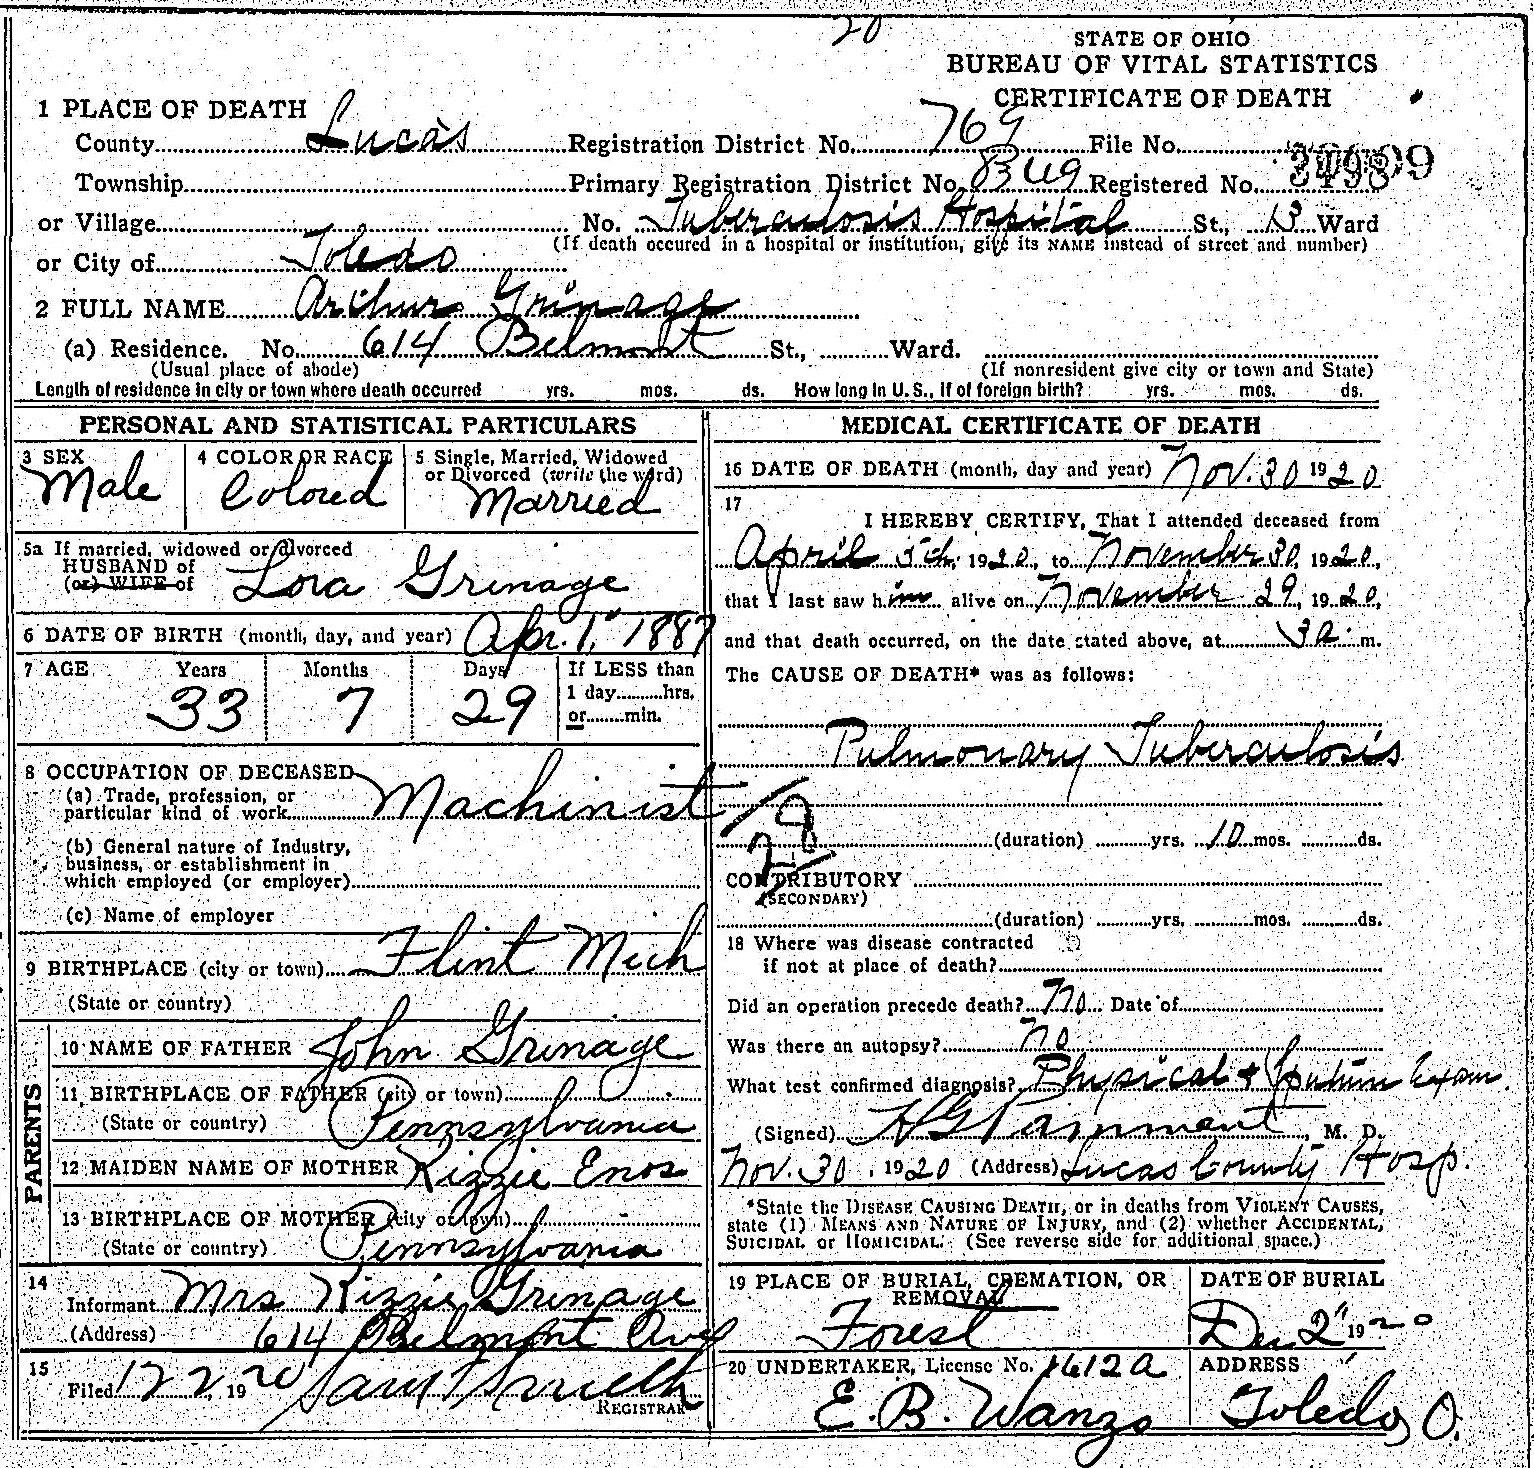 20
STATE OF OHIO
BUREAU OF VITAL STATISTICS
CERTIFICATE OF DEATH
1 PLACE OF DEATH
County Lucas Registration District No. 769 File No.
Township Primary Registration District No. Registered No.
or Village No. Tuberculosis Hospital St., 13 Ward
(If death occured in a hospital or institution, give its NAME instead of street and number)
or City of Toledo
2 FULL NAME Arthur Grinage
(a) Residence. No. 614 Belmont St., Ward.
(Usual place of abode) (If nonresident give city or town and State)
Length of residence in city or town where death occurred yrs. mos. ds. How long in U. S., if of foreign birth? yrs. mos. ds.
PERSONAL AND STATISTICAL PARTICULARS
3 SEX
Male
4 COLOR OR RACE
Colored
5 Single, Married, Widowed
or Divorced (write the word)
Married
5a If married, widowed or divorced
HUSBAND of
(or) WIFE of Lora Grinage
6 DATE OF BIRTH (month, day, and year) Apr. 1, 1887
7 AGE Years Months Days If LESS than
33 7 29 1 day hrs.
or min.
8 OCCUPATION OF DECEASED
(a) Trade, profession, or
particular kind of work Machinist
(b) General nature of Industry,
business, or establishment in
which employed (or employer)
(c) Name of employer
9 BIRTHPLACE (city or town) Flint Mich
(State or country)
PARENTS
10 NAME OF FATHER John Grinage
11 BIRTHPLACE OF FATHER (city or town)
(State or country) Pennsylvania
12 MAIDEN NAME OF MOTHER Kizzie Enos
13 BIRTHPLACE OF MOTHER (city or town)
(State or country) Pennsylvania
14
Informant Mrs Kizzie Grinage
(Address) 614 Belmont Ave
15
Filed 12 2, 1920
REGISTRAR
MEDICAL CERTIFICATE OF DEATH
16 DATE OF DEATH (month, day and year) Nov. 30 1920
17
I HEREBY CERTIFY, That I attended deceased from
April 5th, 1920, to November 30, 1920,
that I last saw him alive on November 29, 1920,
and that death occurred, on the date stated above, at 3 a. m.
The CAUSE OF DEATH* was as follows:
Pulmonary Tuberculosis
28
(duration) yrs. 10 mos. ds.
CONTRIBUTORY
(SECONDARY)
(duration) yrs. mos. ds.
18 Where was disease contracted
if not at place of death?
Did an operation precede death? No Date of
Was there an autopsy? No
What test confirmed diagnosis? Physical + Sputum Exam.
(Signed) H G Pamment, M. D.
Nov. 30, 1920 (Address) Lucas County Hosp.
*State the DISEASE CAUSING DEATH, or in deaths from VIOLENT CAUSES,
state (1) MEANS AND NATURE OF INJURY, and (2) whether ACCIDENTAL,
SUICIDAL or HOMICIDAL. (See reverse side for additional space.)
19 PLACE OF BURIAL, CREMATION, OR
REMOVAL
Forest
DATE OF BURIAL
Dec 2" 1920
20 UNDERTAKER, License No. 1612a
E. B. Wanzo
ADDRESS
Toledo, O.